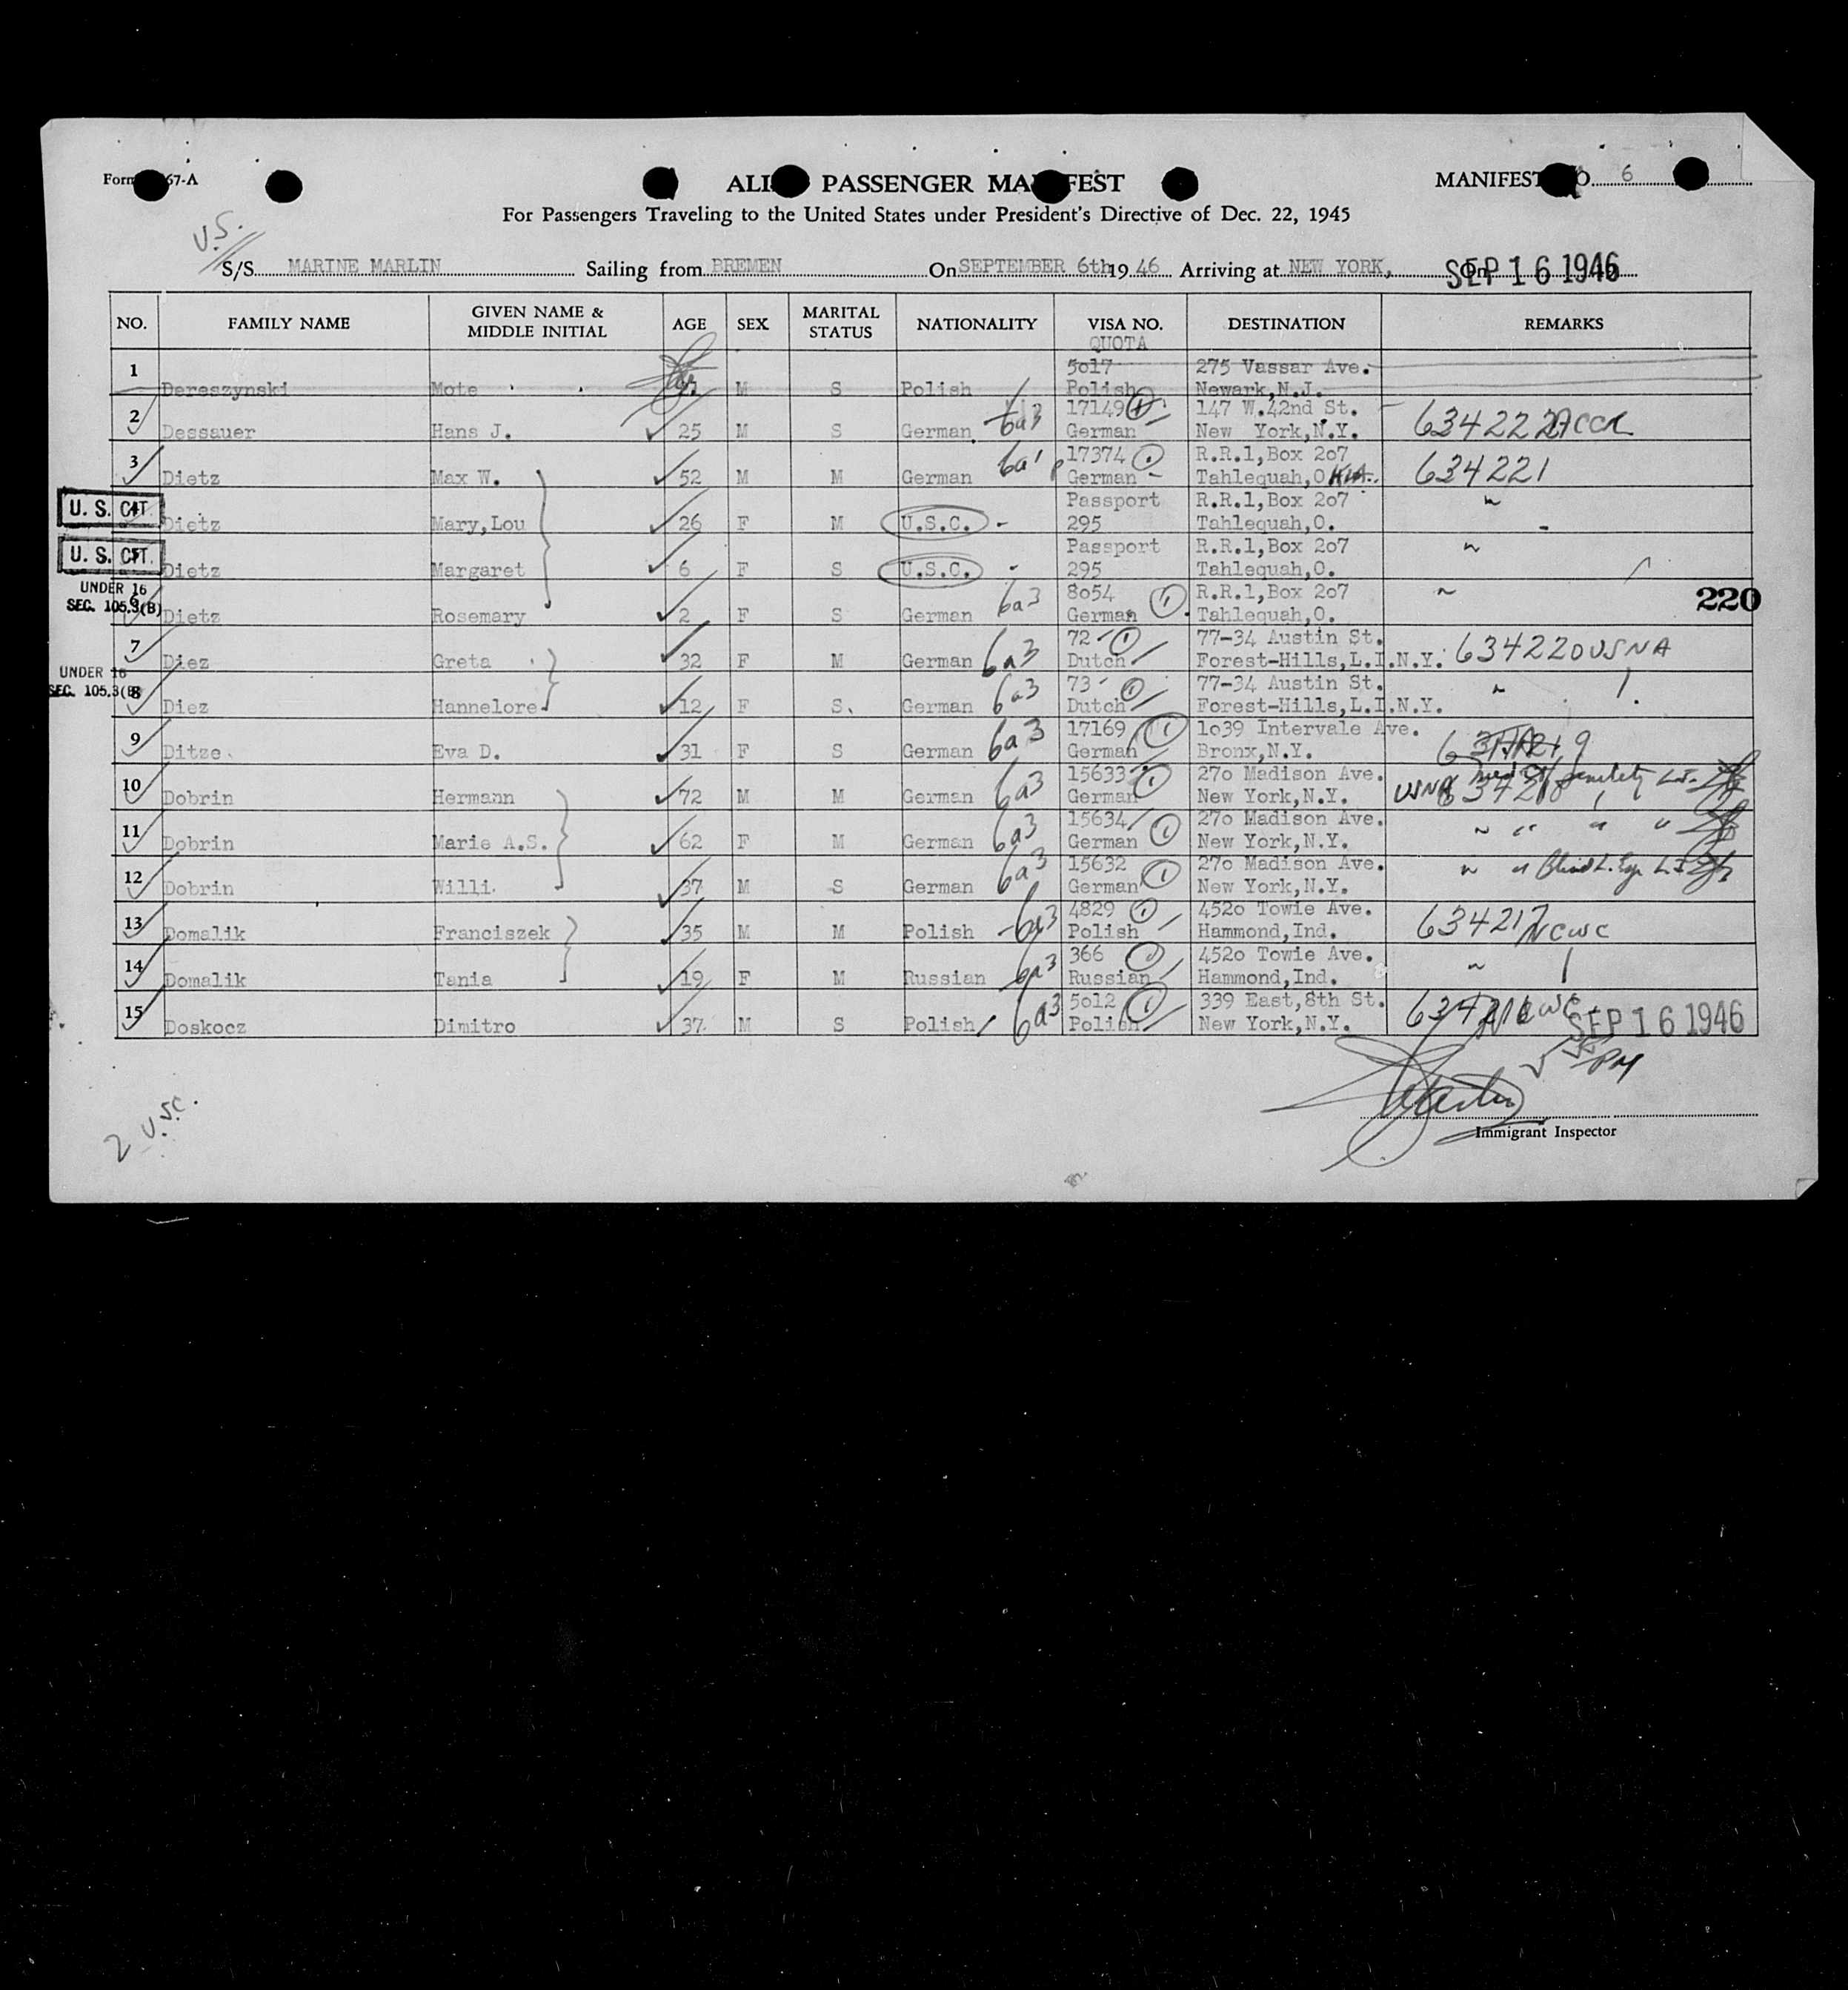 Form 67-A
ALI PASSENGER MA FEST
MANIFEST O. 6
For Passengers Traveling to the United States under President's Directive of Dec. 22, 1945
U.S.
S/S MARINE MARLIN Sailing from BREMEN On SEPTEMBER 6th 19 46 Arriving at NEW YORK, On SEP 16 1946
NO. FAMILY NAME GIVEN NAME & MIDDLE INITIAL AGE SEX MARITAL STATUS NATIONALITY VISA NO. QUOTA DESTINATION REMARKS
1 5017 275 Vassar Ave.
Dereszynski Mote M S Polish Polish Newark,N.J.
2 17149 1 147 W.42nd St.
Dessauer Hans J. 25 M S German 6a3 German New York,N.Y. 634222
3 17374 R.R.1,Box 207
Dietz Max W. 52 M M German 6a1 German Tahlequah,O 634221
U. S. CIT. 4 Passport R.R.1,Box 207 "
Dietz Mary,Lou 26 F M U.S.C. 295 Tahlequah,O.
U. S. CIT. 5 Passport R.R.1,Box 207 "
Dietz Margaret 6 F S U.S.C. 295 Tahlequah,O.
UNDER 16
SEC. 105.3(B) 6 8054 1 R.R.1,Box 207 " 220
Dietz Rosemary 2 F S German 6a3 German Tahlequah,O.
7 72 1 77-34 Austin St.
Diez Greta 32 F M German 6a3 Dutch Forest-Hills,L.I.N.Y. 634220 USNA
UNDER 16
SEC. 105.3(B) 8 73 1 77-34 Austin St. "
Diez Hannelore 12 F S German 6a3 Dutch Forest-Hills,L.I.N.Y.
9 17169 1 1o39 Intervale Ave.
Ditze Eva D. 31 F S German 6a3 German Bronx,N.Y.
10 15633 1 27o Madison Ave.
Dobrin Hermann 72 M M German 6a3 German New York,N.Y. USNA 634218
11 15634 1 27o Madison Ave. " " " "
Dobrin Marie A.S. 62 F M German 6a3 German New York,N.Y.
12 15632 1 27o Madison Ave. " "
Dobrin Willi 37 M S German 6a3 German New York,N.Y.
13 4829 1 452o Towie Ave.
Domalik Franciszek 35 M M Polish 6a3 Polish Hammond,Ind. 634217 NCWC
14 366 1 452o Towie Ave. "
Domalik Tania 19 F M Russian 6a3 Russian Hammond,Ind.
15 5o12 1 339 East,8th St.
Doskocz Dimitro 37 M S Polish 6a3 Polish New York,N.Y. SEP 16 1946
PM
2 U.S.C.
Immigrant Inspector